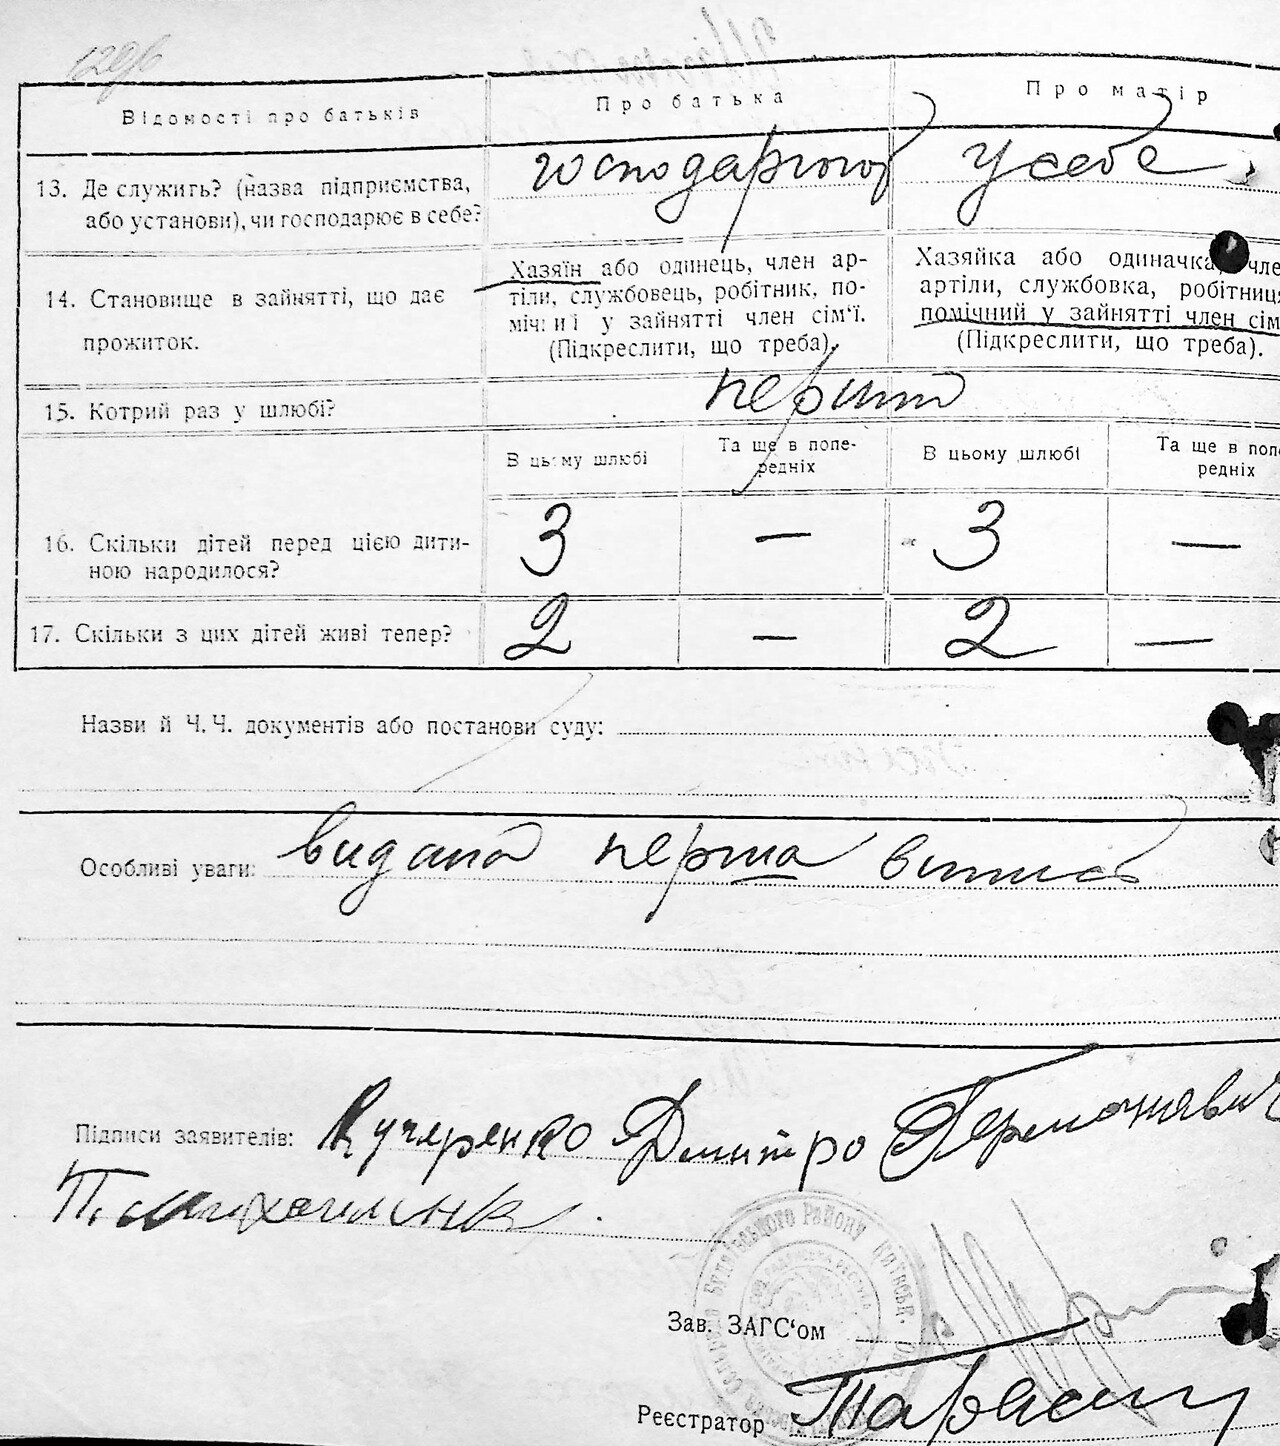 1296
Відомості про батьків
Про батька
Про матір
13. Де служить? (назва підприємства,
або установи), чи господарює в себе?
господарюють у себе
14. Становище в зайнятті, що дає
прожиток.
Хазяїн або одинець, член ар-
тілі, службовець, робітник, по-
мічний у зайнятті член сім'ї.
(Підкреслити, що треба).
Хазяйка або одиначка, чле
артіли, службовка, робітниця
помічний у зайнятті член сім
(Підкреслити, що треба).
15. Котрий раз у шлюбі?
перший
В цьому шлюбі
Та ще в попе-
редніх
В цьому шлюбі
Та ще в попе
редніх
16. Скільки дітей перед цією дити-
ною народилося?
3 — 3 —
17. Скільки з цих дітей живі тепер?
2 — 2 —
Назви й Ч.Ч. документів або постанови суду:
Особливі уваги: видана перша випись
Підписи заявителів: Кучеренко Дмитро
Зав. ЗАГС'ом
Реєстратор